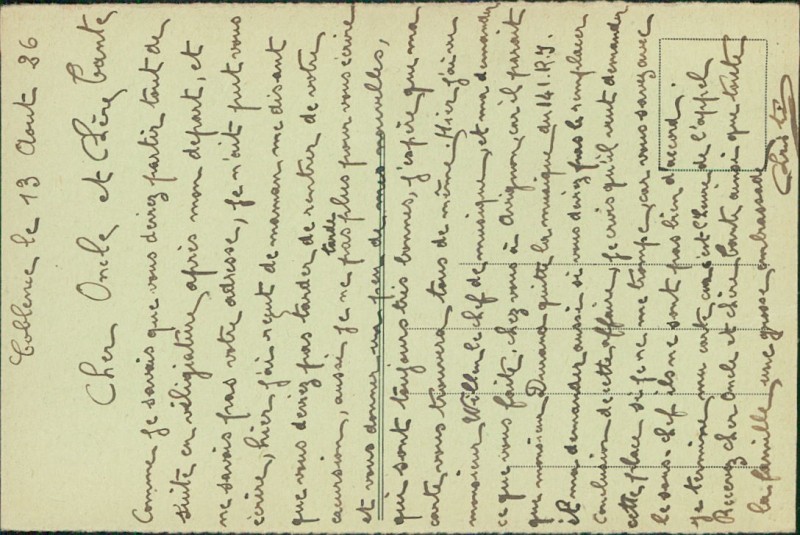 Coblence le 13 Aout 26
Cher Oncle et Chère Tante
Comme je savais que vous deviez partir tout de
suite en villégiature, après mon départ, et
ne savais pas votre adresse, je n'ait put vous
écrire, hier j'ai reçut de maman me disant
que vous deviez pas tarder de rentrer de votre
excursion, aussi je ne tarde pas plus pour vous écrire
et vous donner un peu de mes nouvelles,
qui sont toujours très bonnes, j'espère que ma
carte vous trouvera tous de même. Hier j'ai vu
monsieur Willem le chef de musique, et ma demander
ce que vous faite, chez vous à Avignon, car il parait
que monsieur quitte la musique du 141. R.I.
et ma demander aussi si vous deviez pas le remplacer
Conclusion de cette affaire, je crois qu'il veut demander
cette place si je ne me trompe, car vous savez avec
le sous-chef ils ne sont pas bien d'accord.
Je termine ma carte car s'est l'heure de l'appel
Recevez cher Oncle et chère tante ainsi que toute
la famille, une grosse embrassade